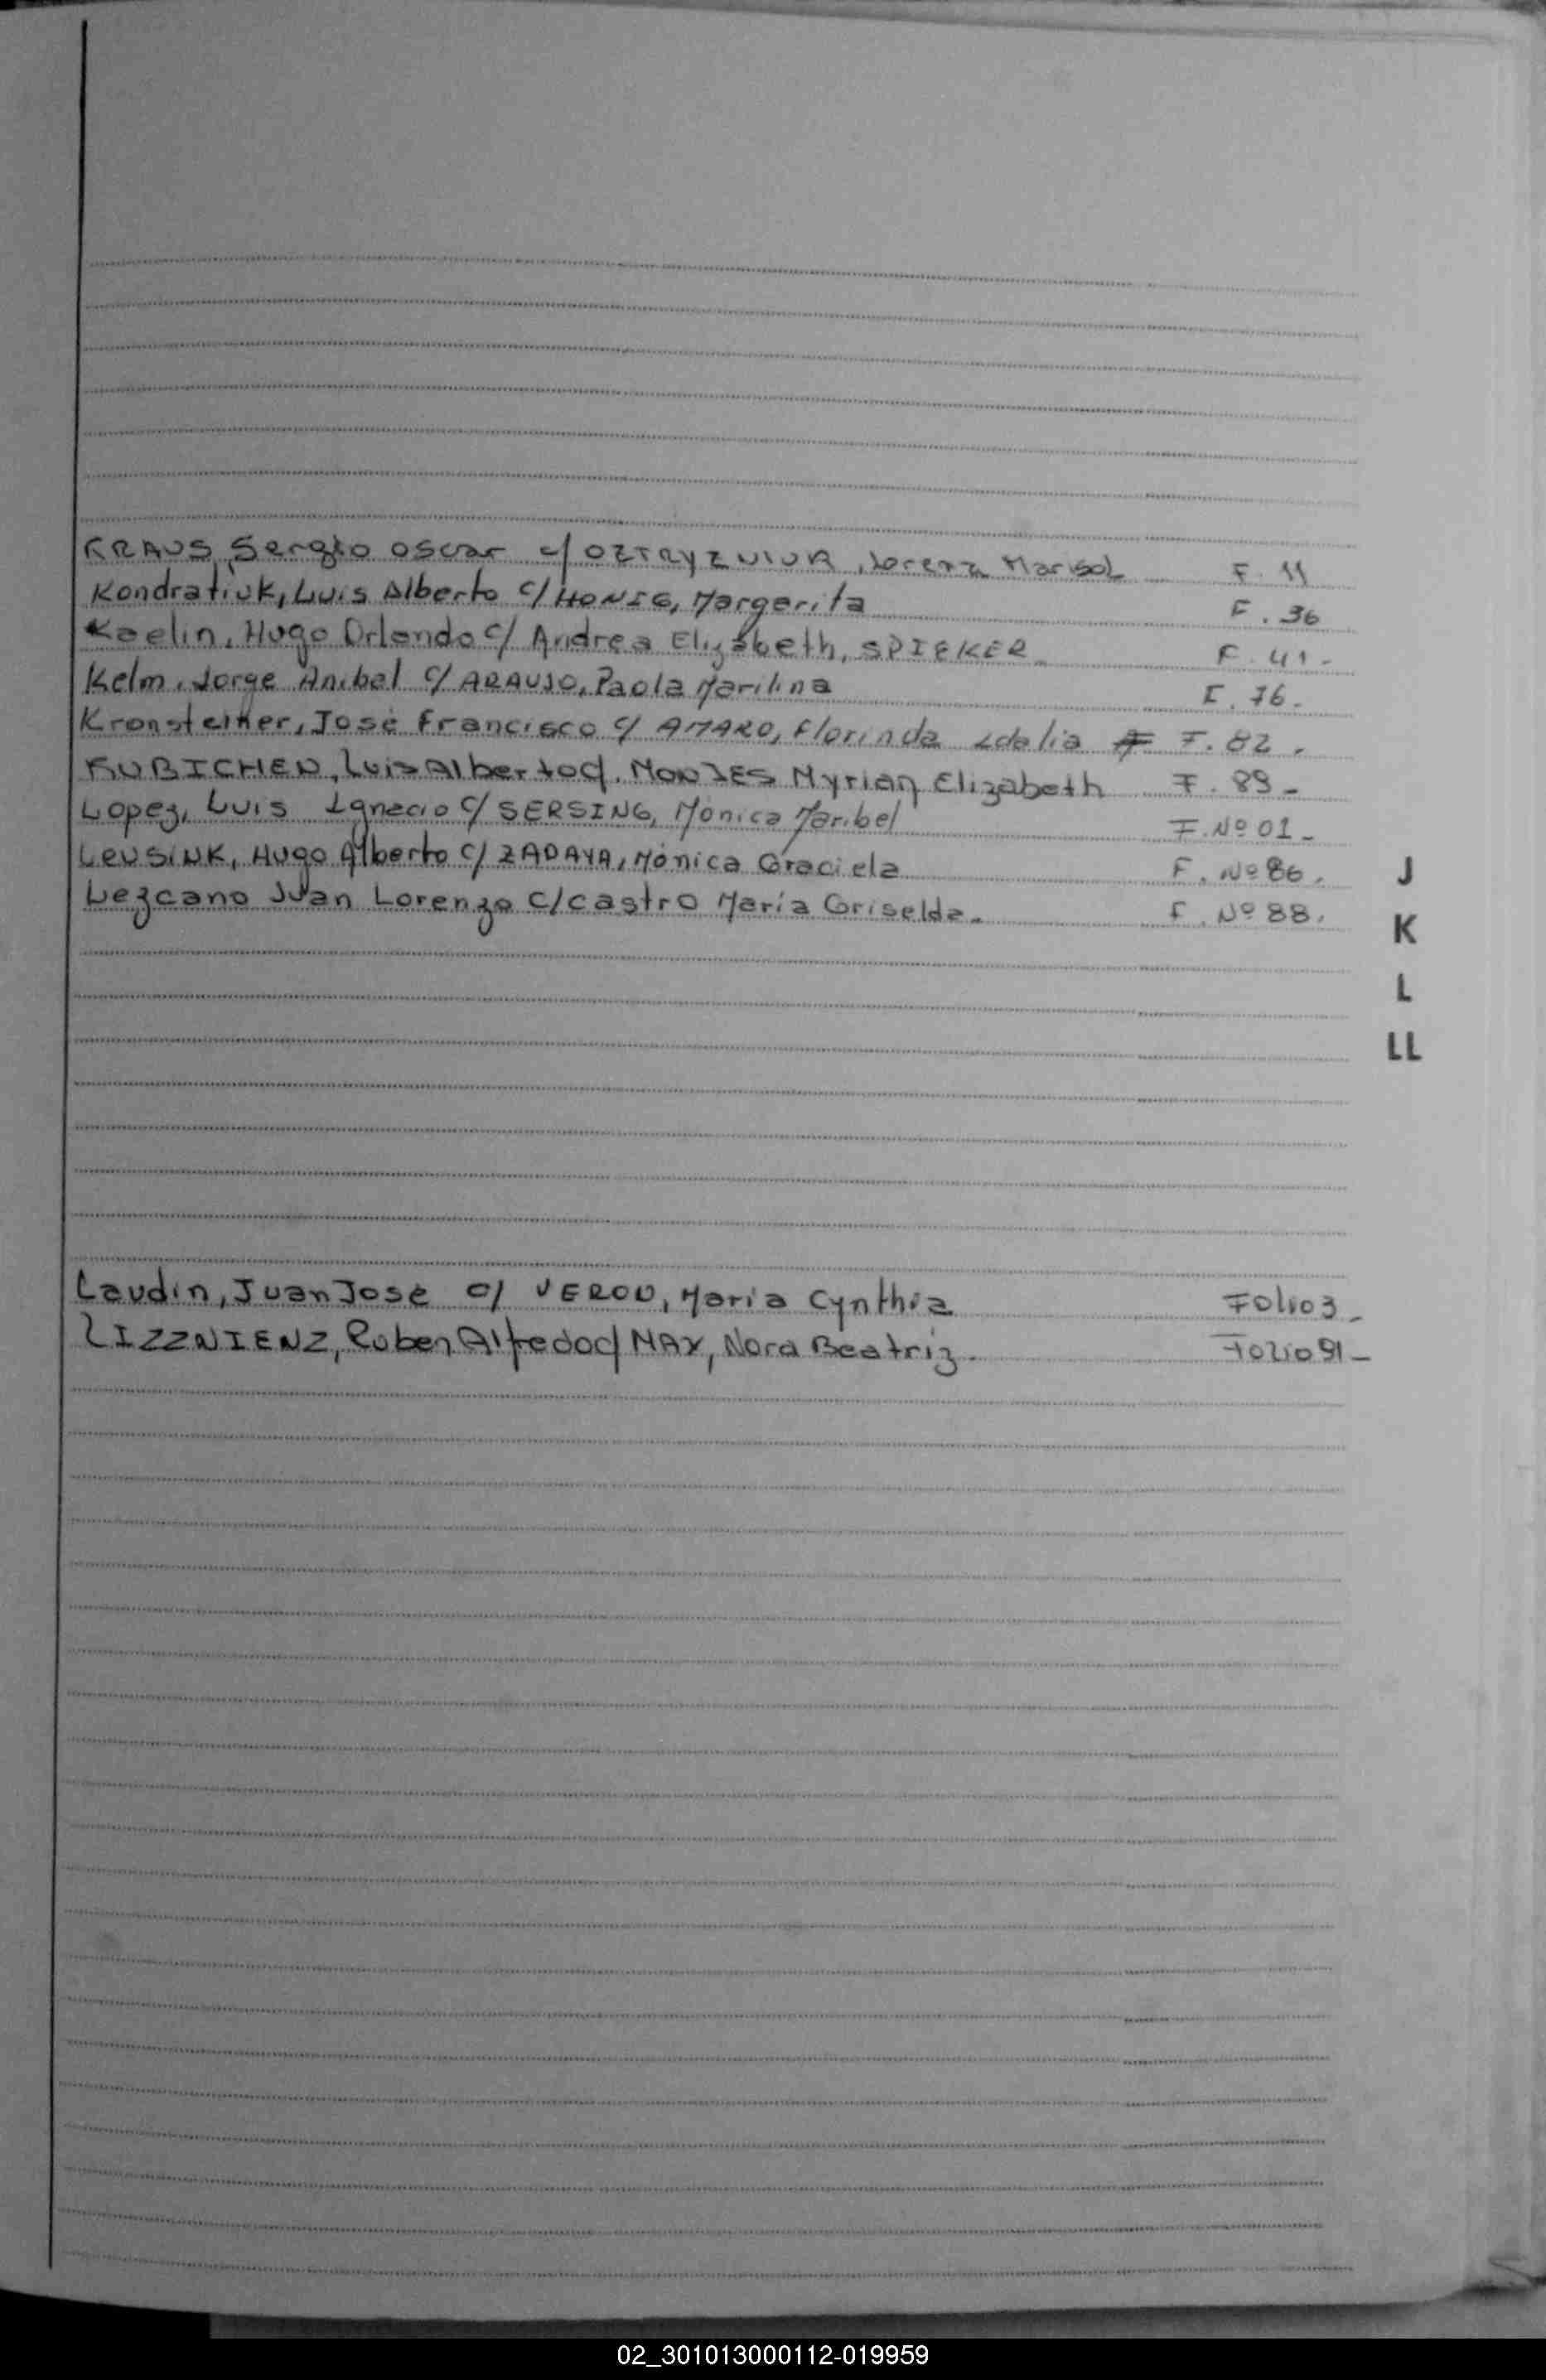 KRAUS, Sergio Oscar c/ OZTRYZNIUK, Lorena Marisol F. 11
Kondratiuk, Luis Alberto c/ HONIG, Margerita F. 36
Kaelin, Hugo Orlando c/ Andrea Elizabeth, SPIEKER F. 41-
Kelm, Jorge Anibal c/ ARAUJO, Paola Marilina F. 76.
Kronsteiner, José Francisco c/ AMARO, Florinda Idalia F. 82.
Luis Alberto c/. Myrian Elizabeth F. 89-
Lopez, Luis Ignacio c/ SERSING, Mónica Maribel F. Nº 01-
LEUSINK, Hugo Alberto c/ ZADAYA, Mónica Graciela F. Nº 86.
J
Lezcano Juan Lorenzo c/ castro María Griselda. F. Nº 88.
K
L
LL
Laudin, Juan José c/ VERON, Maria Cynthia Folio 3-
Ruben Alfredo c/ MAY, Nora Beatriz. Folio 91-
02_301013000112-019959